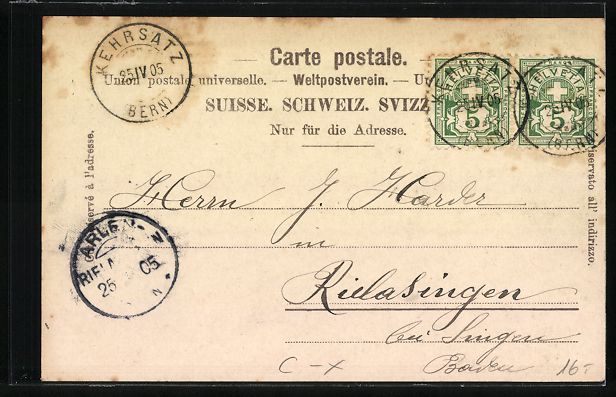 KEHRSATZ
25 IV 05
(BERN)
Carte postale.
Union postale universelle. — Weltpostverein. — Un
SUISSE. SCHWEIZ. SVIZZ
Nur für die Adresse.
HELVETIA
5
HELVETIA
5
KEHRSATZ
IV 05
(BERN)
servé à l'adresse.
riservato all' indirizzo.
Herrn J. Harder
in
Rielasingen
bei Singen
Baden
ARLEN-
RIELA
25 05
C-X
16-